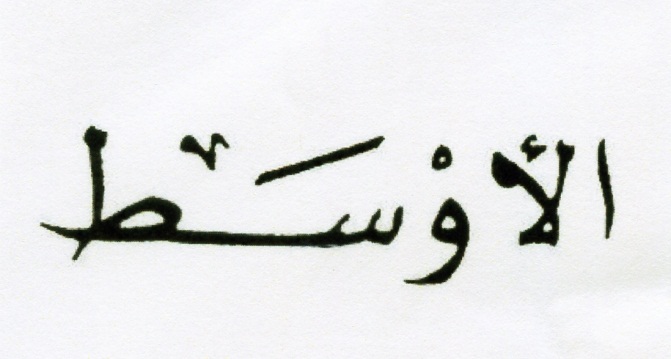 الأوْسَط